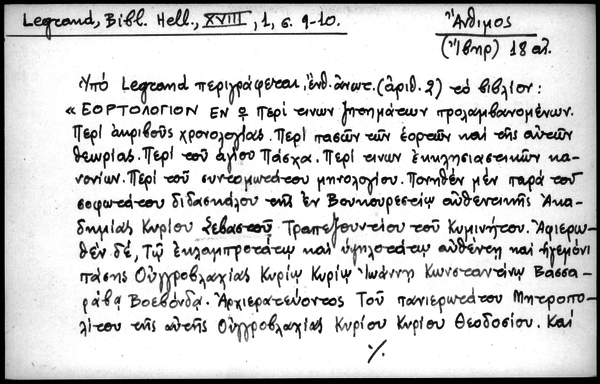 Legrand, Bibl. Hell., XVIII, 1, σ. 9-10.
Ἄνθιμος
(Ἴβηρ) 18 αἰ.
Ὑπὸ Legrand περιγράφεται, ἐνθ. ἀνωτ. (ἀριθ. 2) τὸ βιβλίον:
« ΕΟΡΤΟΛΟΓΙΟΝ ΕΝ ᾯ Περί τινων ζητημάτων προλαμβανομένων.
Περὶ ἀκριβοῦς χρονολογίας. Περὶ πασῶν τῶν ἑορτῶν καὶ τῆς αὐτῶν
θεωρίας. Περὶ τοῦ ἁγίου Πάσχα. Περί τινων ἐκκλησιαστικῶν κα-
νονίων. Περὶ τοῦ συντομωτάτου μηνολογίου. Ποιηθὲν μὲν παρὰ τοῦ
σοφωτάτου διδασκάλου τῆς ἐν Βουκουρεστίῳ αὐθεντικῆς Ἀκα-
δημίας Κυρίου Σεβαστοῦ Τραπεζουντίου τοῦ Κυμινήτου. Ἀφιερω-
θὲν δέ, Τῷ ἐκλαμπροτάτῳ καὶ ὑψηλοτάτῳ αὐθέντῃ καὶ ἡγεμόνι
πάσης Οὐγγροβλαχίας Κυρίῳ Κυρίῳ Ἰωάννῃ Κωνσταντίνῳ Βασσα-
ράβᾳ Βοεβόνδᾳ. Ἀρχιερατεύοντος Τοῦ πανιερωτάτου Μητροπο-
λίτου τῆς αὐτῆς Οὐγγροβλαχίας Κυρίου Κυρίου Θεοδοσίου. Καὶ
./.